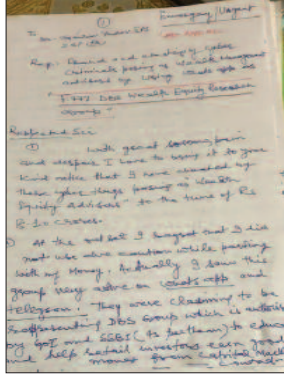 ①
Emergency/Urgent
To
Reg: Fraud and cheating by cyber
Criminals posing as Wealth Management
advisors by using Whats app as
"F-777 DBS Wealth Equity Research
Group"
Respected Sir
① With great
and despair I have to bring it to your
kind notice that I have cheated by
these cyber thugs posing as Wealth
Equity Advisers" to the tune of Rs
8.1= crores.
At the outset I regret that I did
not use due caution while parting
with my Money. Actually I saw this
group very active on Whats app and
telegram. They were claiming to be
representing DBS Group which is
by GoI and SEBI ( to
and help retail investors earn good
money from Capital